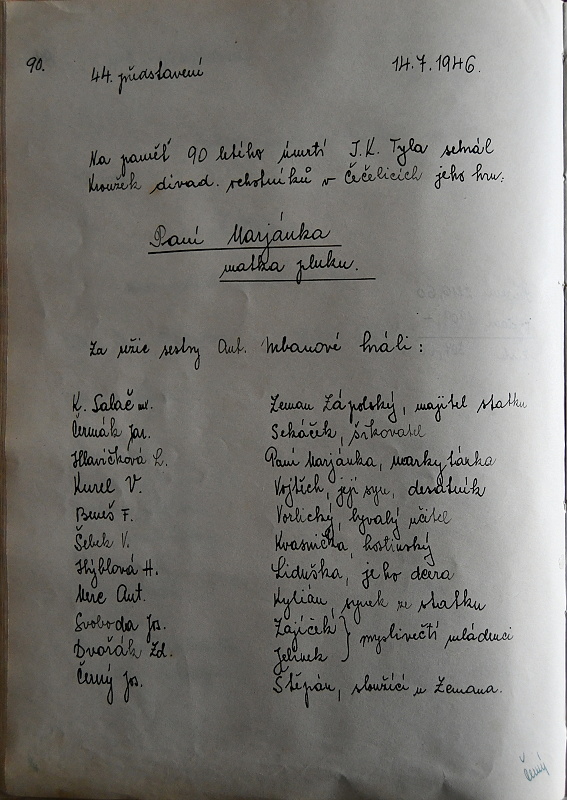 90.
44. představení 14.7.1946.
Na paměť 90 letého úmrtí J.K. Tyla sehrál
Kroužek divad. ochotníků v Čečelicích jeho hru:
Paní Marjánka
matka pluku.
Za režie sestry Ant. Urbanové hráli:
K. Salač ml. Zeman Zápolský, majitel statku
Čermák Jar. Sekáček, šikovatel
Hlavičková L. Paní Marjánka, markytánka
Kurel V. Vojtěch, její syn, desátník
Beneš F. Vorlický, bývalý učitel
Šebek V. Kvasnička, hostinský
Hýblová H. Liduška, jeho dcera
Merc Ant. Kylián, synek ze statku
Svoboda Jos. Zajíček } myslivečtí mládenci
Dvořák Zd. Jelínek
Černý Jos. Štěpán, sloužící u Zemana.
Černý